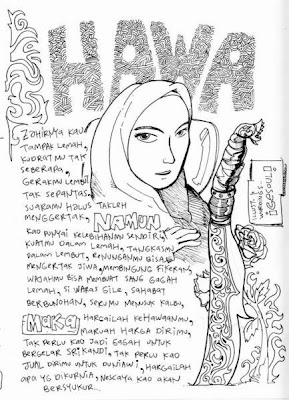 HAWA
ZOHIRNYA KAU
TAMPAK LEMAH,
KUDRATMU TAK
SEBERAPA,
GERAKMU LEMBUT
TAK SEPANTAS,
SUARAMU HALUS TAKLEH
MENGGERTAK, NAMUN
KAO PUNYAI KELEBIHANMU SENDIRI,
KUATMU DALAM LEMAH, TANGKASMU
DALAM LEMBUT, RENUNGANMU BISA
PENGERTAK JIWA, MEMBINGUNG FIKERAN,
WAJAHMU BISA MEMBUAT SANG GAGAH
LEMAH, SI WARAS GILE, SAHABAT
BERBUNOHAN, SERUMU MENUSUK KALBU,
MAKA HARGAILAH KEHAWAANMU,
MARUAH HARGA DIRIMU,
TAK PERLU KAO JADI GAGAH UNTUK
BERGELAR SRIKANDI, TAK PERLU KAO
JUAL DIRIMU UNTUK DUNIAWI, HARGAILAH
APA YG DIKURNIA, NESCAYA KAO AKAN
BERSYUKUR...